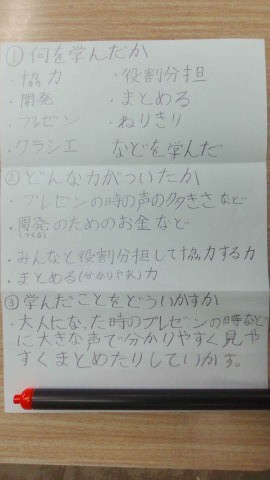 ①何を学んだか
・協力 ・役割分担
・開発 ・まとめる
・プレゼン ・ねりきり
・クラシエ などを学んだ
②どんな力がついたか
・プレゼンの時の声の大きさなど
・開発(つくる)のためのお金など
・みんなと役割分担して協力する力
・まとめる(分かりやすく)力
③学んだことをどういかすか
・大人になった時のプレゼンの時など
に大きな声で分かりやすく見や
すくまとめたりしていかす。